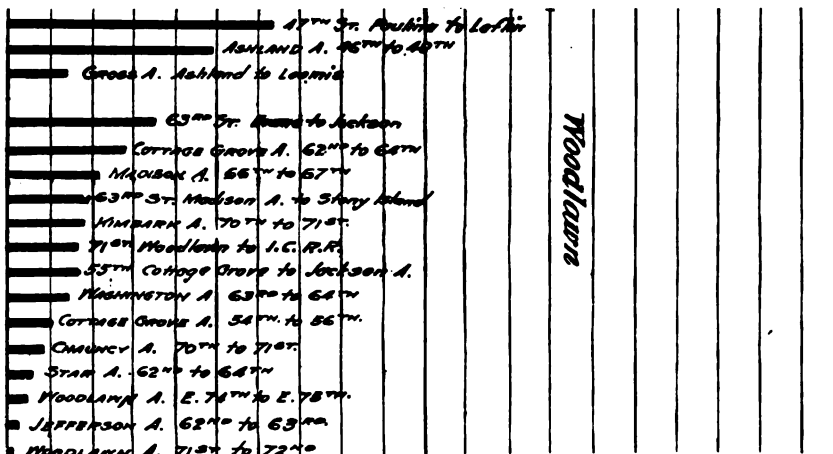 47TH ST. Paulina to Laflin
ASHLAND A. 46TH to 48TH
GROSS A. Ashland to Loomis
63RD ST. to Jackson
COTTAGE GROVE A. 62ND to 64TH
MADISON A. 66TH to 67TH
63RD ST. Madison A. to Stony Island
KIMBARK A. 70TH to 71ST.
71ST. Woodlawn to I.C.R.R.
55TH Cottage Grove to Jackson A.
WASHINGTON A 63RD to 64TH
COTTAGE GROVE A. 54TH. to 56TH.
CHAUNCY A. 70TH to 71ST.
STAR A. 62ND to 64TH
WOODLAWN A. E. 74TH to E. 75TH.
JEFFERSON A. 62ND to 63RD.
WOODLAWN A. 71ST to 72ND
Woodlawn